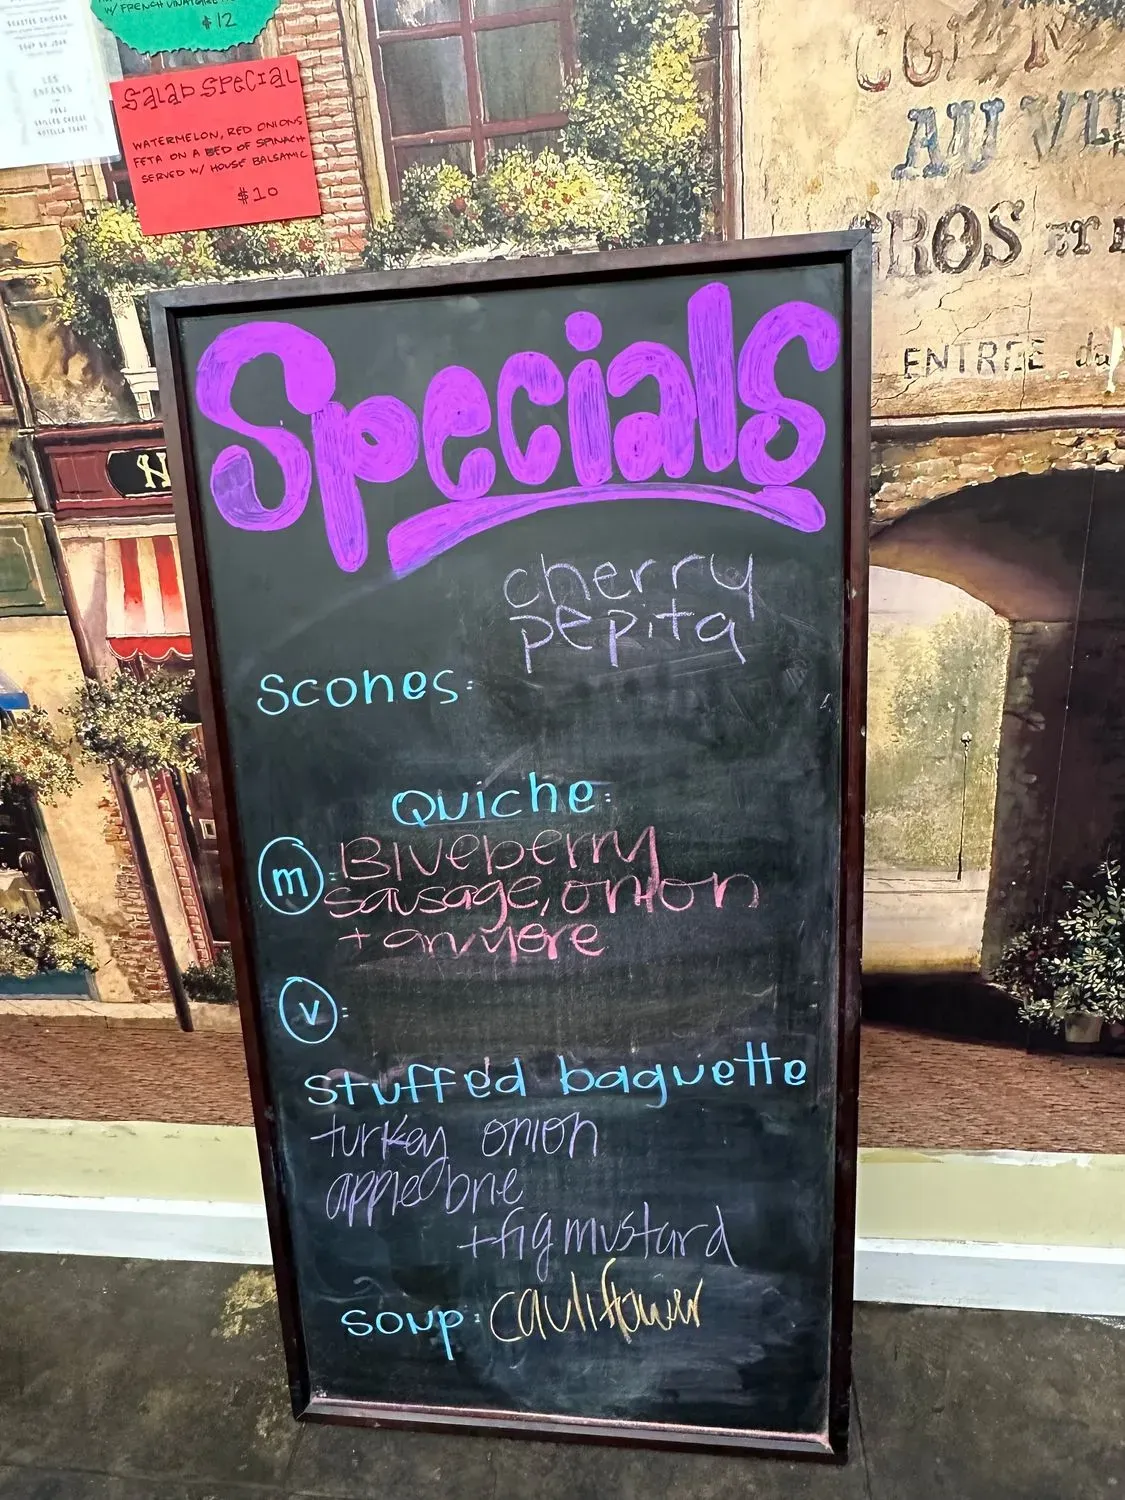 W/ FRENCH VINAIGRETTE
$12
ROASTED CHICKEN
SOUP DU JOUR
LES
ENFANTS
PB&J
GRILLED CHEESE
NUTELLA TOAST
Salad Special
WATERMELON, RED ONIONS
FETA ON A BED OF SPINACH
SERVED W/ HOUSE BALSAMIC
$10
AU VI
GROS ET
ENTRÉE du
N
Specials
cherry
pepita
Scones:
Quiche:
m: Blueberry
sausage, onion
+ gruyere
v:
Stuffed baguette
turkey onion
apple brie
+ fig mustard
soup: cauliflower